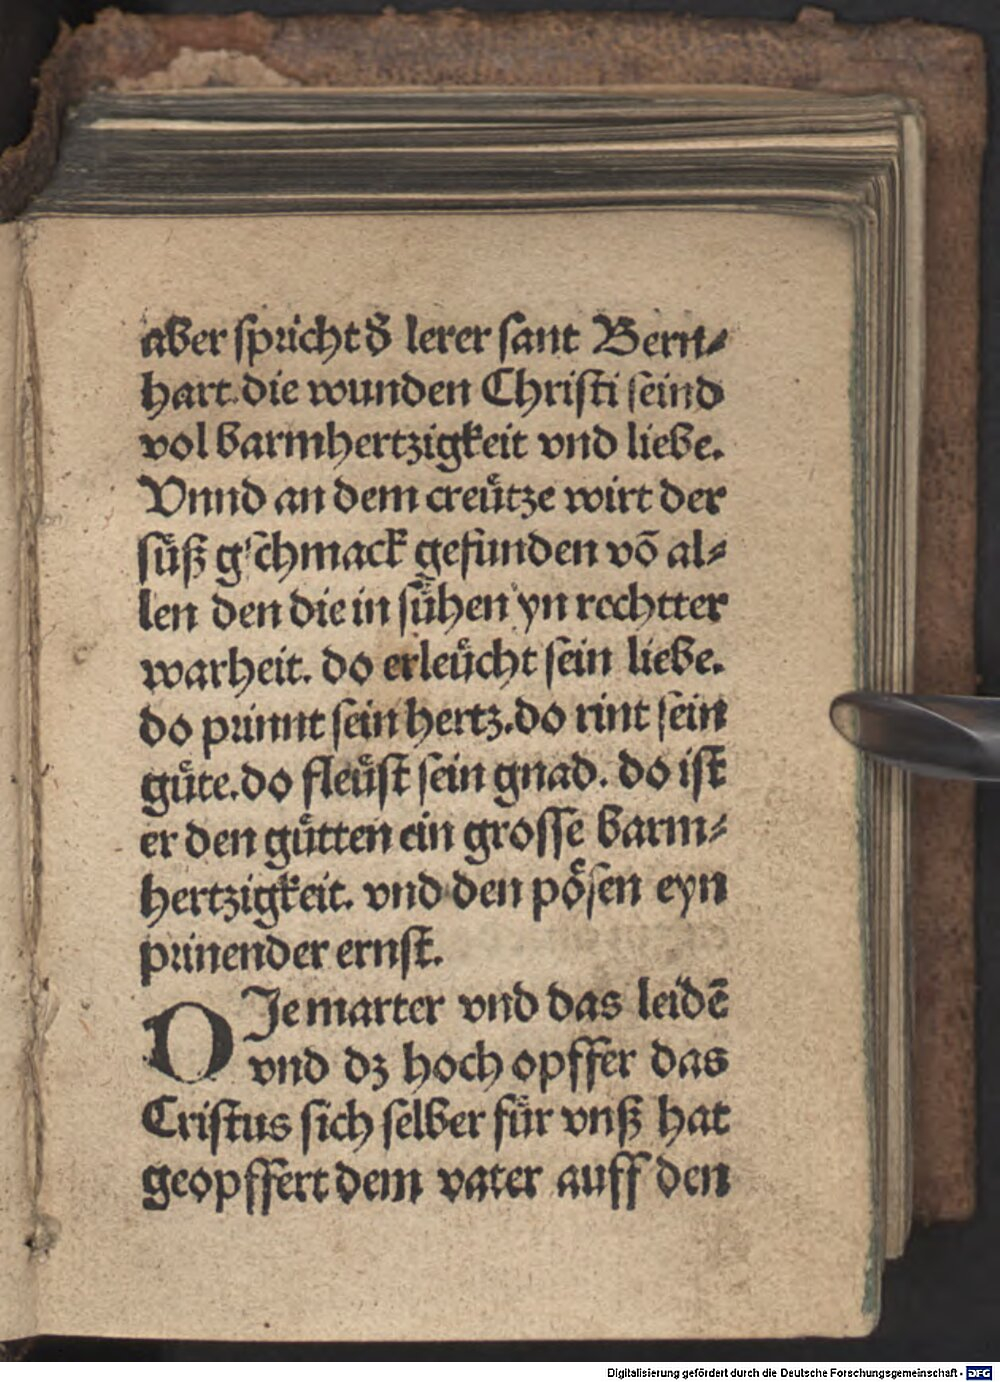 aber spricht d̕ lerer sant Bern⸗
hart. die wunden Christi seind
vol barmhertzigkeit vnd liebe.
Vnnd an dem creütze wirt der
süß gschmack gefunden vō al⸗
len den die in sühen yn rechtter
warheit. do erleücht sein liebe.
do prinnt sein hertz. do rint sein
güte. do fleüst sein gnad. do ist
er den gütten ein grosse barm⸗
hertzigkeit. vnd den pösen eyn
prinender ernst.
DIe marter vnd das leidē
vnd dz hoch opffer das
Cristus sich selber für vnß hat
geopffert dem vater auff den
Digitalisierung gefördert durch die Deutsche Forschungsgemeinschaft - DFG